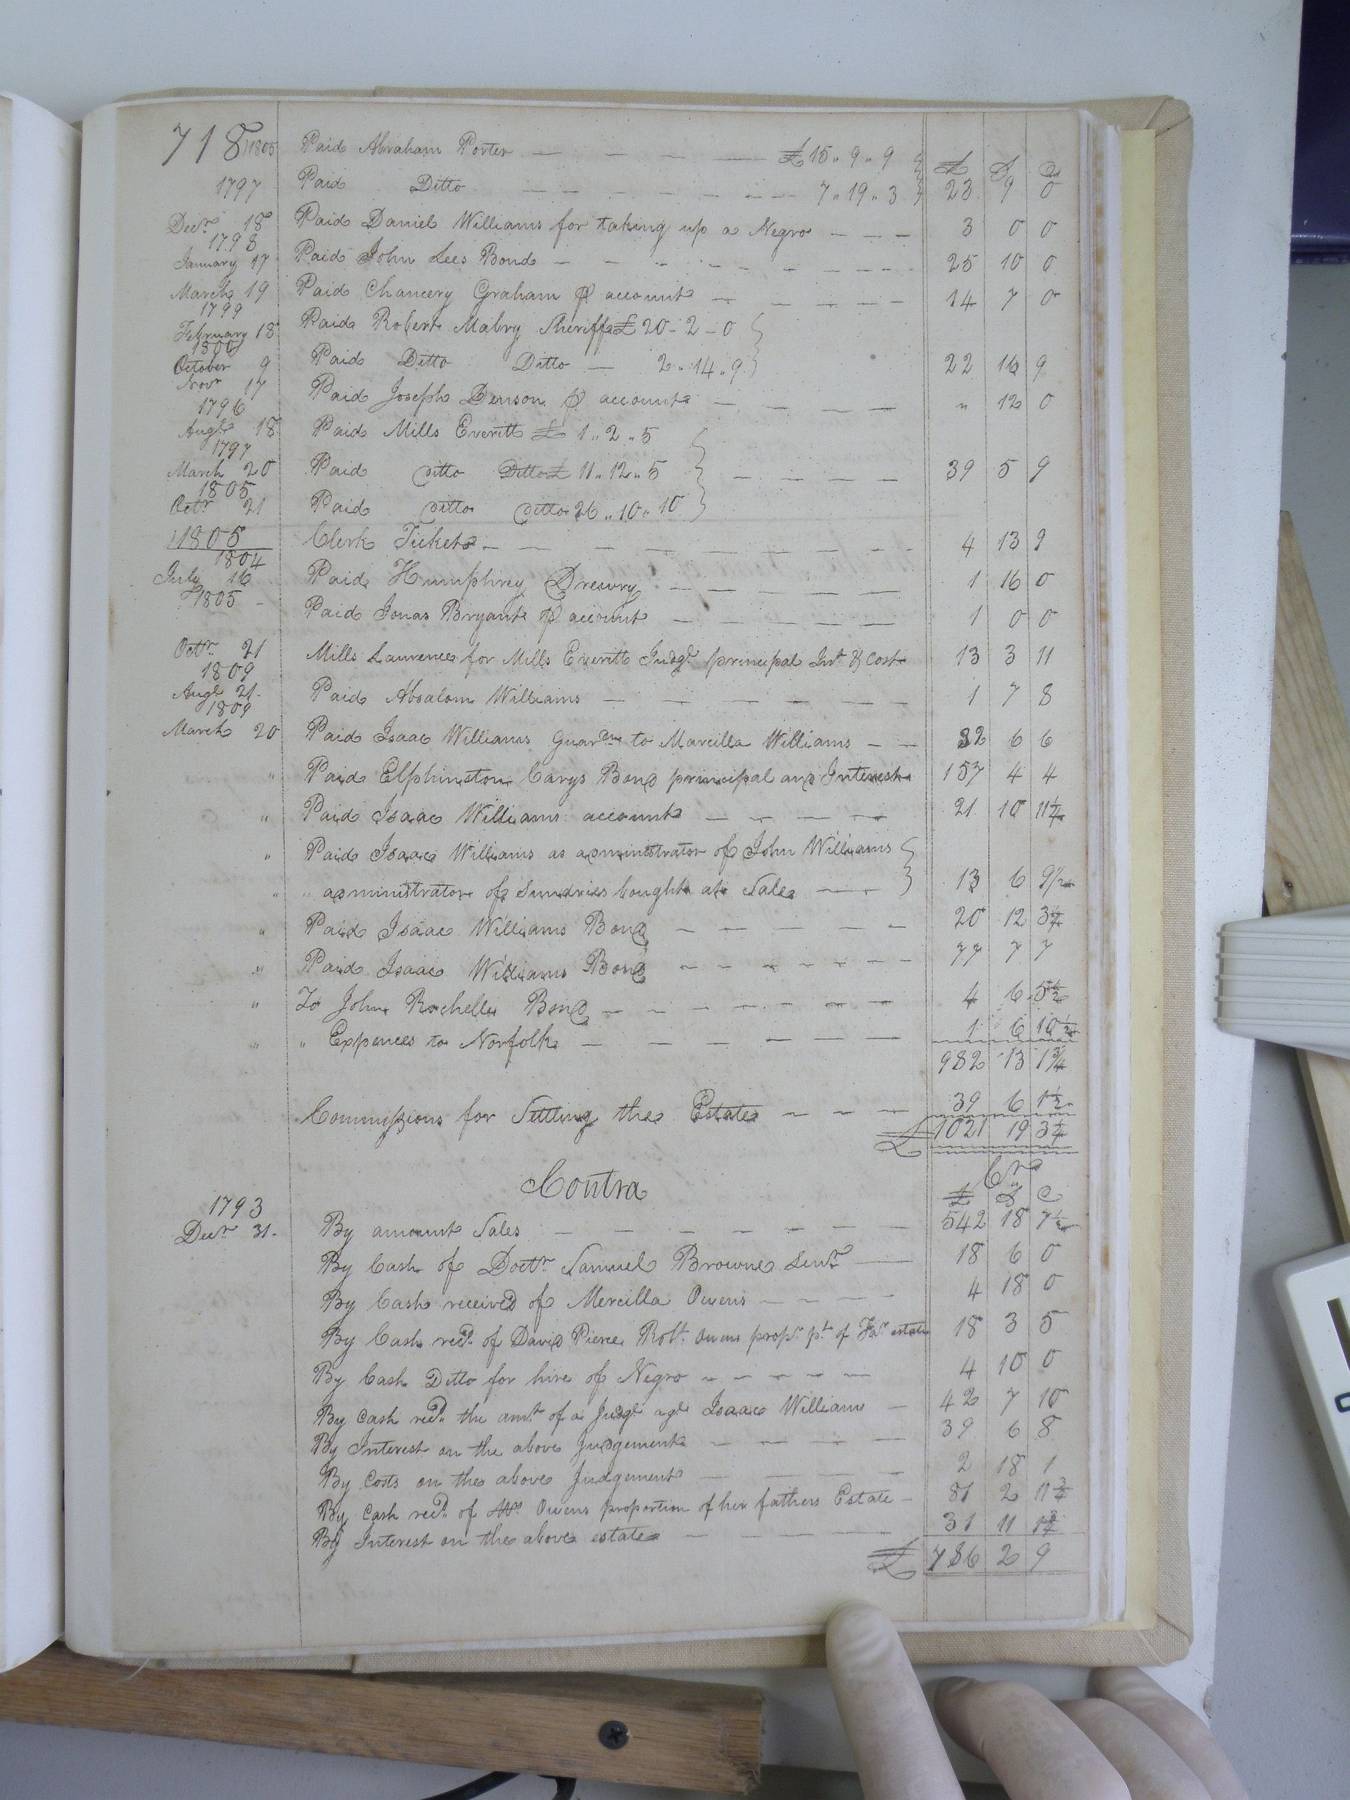 718 1805 Paid Abraham Porter £15 „ 9 „ 9 £ S D
1797 Paid Ditto 7 „ 19 „ 3 23 9 0
Decr 18 Paid Daniel Williams for taking up a Negro 3 0 0
1798
January 17 Paid John Lees Bond 25 10 0
March 19 Paid Chancery Graham p account 14 7 0
1799
February 18 Paid Robert Mabry Sheriff £ 20 - 2 - 0
1800
October 9 Paid Ditto Ditto 2 „ 14 „ 9 22 16 9
Novr 17 Paid Joseph Denson p account „ 12 0
1796
Augt 18 Paid Mills Everitt £ 1 „ 2 „ 5
1797
March 20 Paid Ditto Ditto £ 11 „ 12 „ 5 39 5 9
1805
Octr 21 Paid Ditto Ditto 26 „ 10 „ 10
1805 Clerk Tickets 4 13 9
1804
July 16 Paid Humphrey Drewry 1 16 0
1805 Paid Jonas Bryant p account 1 0 0
Octr 21 Mills Laurence for Mills Everitt Judgt principal Int & Cost 13 3 11
1809
Augt 21 Paid Absalom Williams 1 7 8
1809
March 20 Paid Isaac Williams Guardn to Marcilla Williams 32 6 6
„ Paid Elphinston Carys Bond principal and Interest 157 4 4
„ Paid Isaac Williams account 21 10 11 1/4
„ Paid Isaac Williams as administrator of John Williams
„ „ administrator of Sundries bought at Sale 13 6 9 1/2
„ Paid Isaac Williams Bond 20 12 3 1/4
„ Paid Isaac Williams Bond 77 7 7
„ To John Rochelle Bond 4 6 5 1/2
„ „ Expences to Norfolk 1 6 10 1/2
982 13 1 3/4
Commissions for Setting the Estate 39 6 1 1/2
£ 1021 19 3 1/4
Contra Cr
1793 £ S D
Decr 31 By amount Sales 542 18 7 1/2
By Cash of Doctr Samuel Browne Senr 18 6 0
By Cash received of Mercilla Owens 4 18 0
By Cash recd of David Pierce Robt Owens propr pt of Far estate 18 3 5
By Cash Ditto for hire of Negro 4 10 0
By Cash recd the amt of a Judgt agt Isaac Williams 42 7 10
By Interest on the above Judgement 39 6 8
By Costs on the above Judgement 2 18 1
By Cash recd of Owens proportion of her fathers Estate 81 2 11 3/4
By Interest on the above estate 31 11 1 3/4
£ 786 2 9